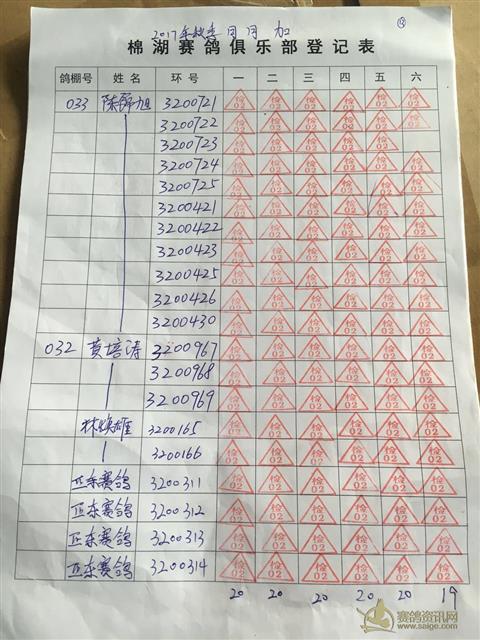 2017年秋季月月加 ⑬
棉湖赛鸽俱乐部登记表
鸽棚号 姓名 环号 一 二 三 四 五 六
033 陈 旭 3200721 检02 检02 检02 检02 检02 检02
3200722 检02 检02 检02 检02 检02 检02
3200723 检02 检02 检02 检02 检02
3200724 检02 检02 检02 检02 检02 检02
3200725 检02 检02 检02 检02 检02 检02
3200421 检02 检02 检02 检02 检02 检02
3200422 检02 检02 检02 检02 检02 检02
3200423 检02 检02 检02 检02 检02 检02
3200425 检02 检02 检02 检02 检02 检02
3200426 检02 检02 检02 检02 检02 检02
3200430 检02 检02 检02 检02 检02 检02
032 黄培涛 3200967 检02 检02 检02 检02 检02 检02
3200968 检02 检02 检02 检02 检02 检02
3200969 检02 检02 检02 检02 检02 检02
林焕雄 3200165 检02 检02 检02 检02 检02 检02
3200166 检02 检02 检02 检02 检02 检02
正东赛鸽 3200311 检02 检02 检02 检02 检02 检02
正东赛鸽 3200312 检02 检02 检02 检02 检02 检02
正东赛鸽 3200313 检02 检02 检02 检02 检02 检02
正东赛鸽 3200314 检02 检02 检02 检02 检02 检02
20 20 20 20 20 19
赛鸽资讯网
www.saige.com